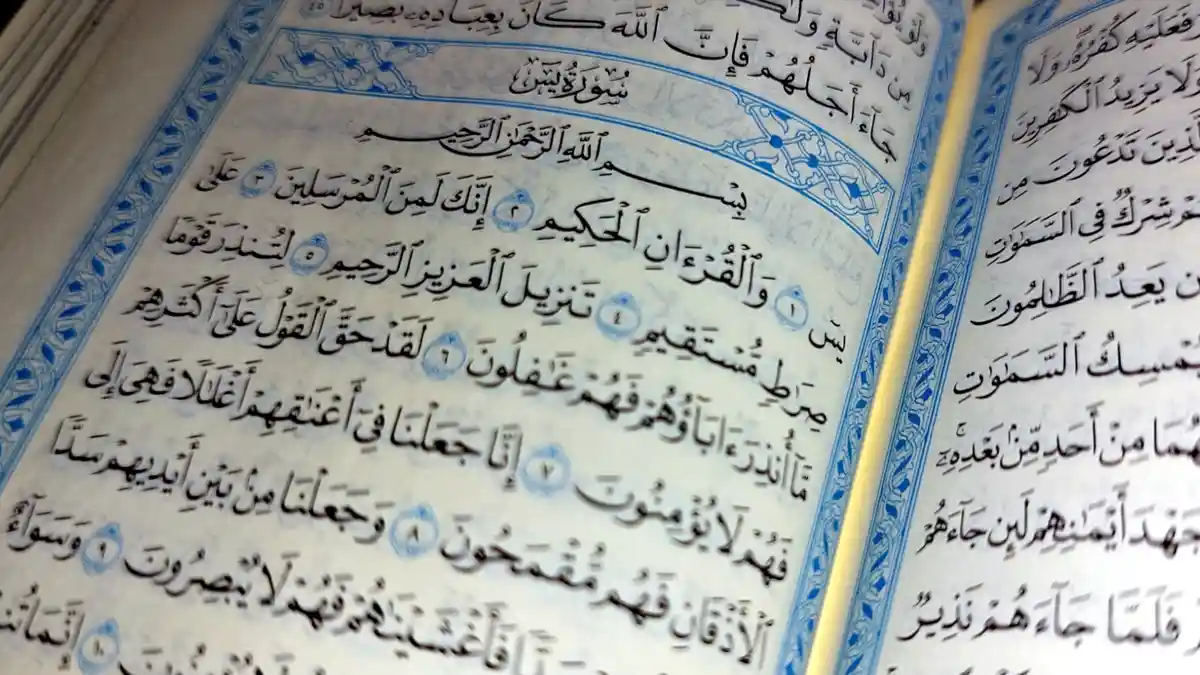 فَعَلَيْهِ كُفْرُهُۥ وَلَا
وَلَا يَزِيدُ ٱلْكَٰفِرِينَ
تَدْعُونَ مِن
شِرْكٌ فِى ٱلسَّمَٰوَٰتِ
يَعِدُ ٱلظَّٰلِمُونَ
يُمْسِكُ ٱلسَّمَٰوَٰتِ
مِنْ أَحَدٍ مِّنۢ بَعْدِهِۦٓ
جَهْدَ أَيْمَٰنِهِمْ لَئِن جَآءَهُمْ
فَلَمَّا جَآءَهُمْ نَذِيرٌ
مِن دَآبَّةٍ
جَآءَ أَجَلُهُمْ فَإِنَّ ٱللَّهَ كَانَ بِعِبَادِهِۦ بَصِيرًۢا ٤٥
سُورَةُ يسٓ
بِسْمِ ٱللَّهِ ٱلرَّحْمَٰنِ ٱلرَّحِيمِ
يسٓ ١ وَٱلْقُرْءَانِ ٱلْحَكِيمِ ٢ إِنَّكَ لَمِنَ ٱلْمُرْسَلِينَ ٣ عَلَىٰ
صِرَٰطٍ مُّسْتَقِيمٍ ٤ تَنزِيلَ ٱلْعَزِيزِ ٱلرَّحِيمِ ٥ لِتُنذِرَ قَوْمًا
مَّآ أُنذِرَ ءَابَآؤُهُمْ فَهُمْ غَٰفِلُونَ ٦ لَقَدْ حَقَّ ٱلْقَوْلُ عَلَىٰٓ أَكْثَرِهِمْ
فَهُمْ لَا يُؤْمِنُونَ ٧ إِنَّا جَعَلْنَا فِىٓ أَعْنَٰقِهِمْ أَغْلَٰلًا فَهِىَ إِلَى
ٱلْأَذْقَانِ فَهُم مُّقْمَحُونَ ٨ وَجَعَلْنَا مِنۢ بَيْنِ أَيْدِيهِمْ سَدًّا
فَأَغْشَيْنَٰهُمْ فَهُمْ لَا يُبْصِرُونَ ٩ وَسَوَآءٌ
١٠ إِنَّمَا